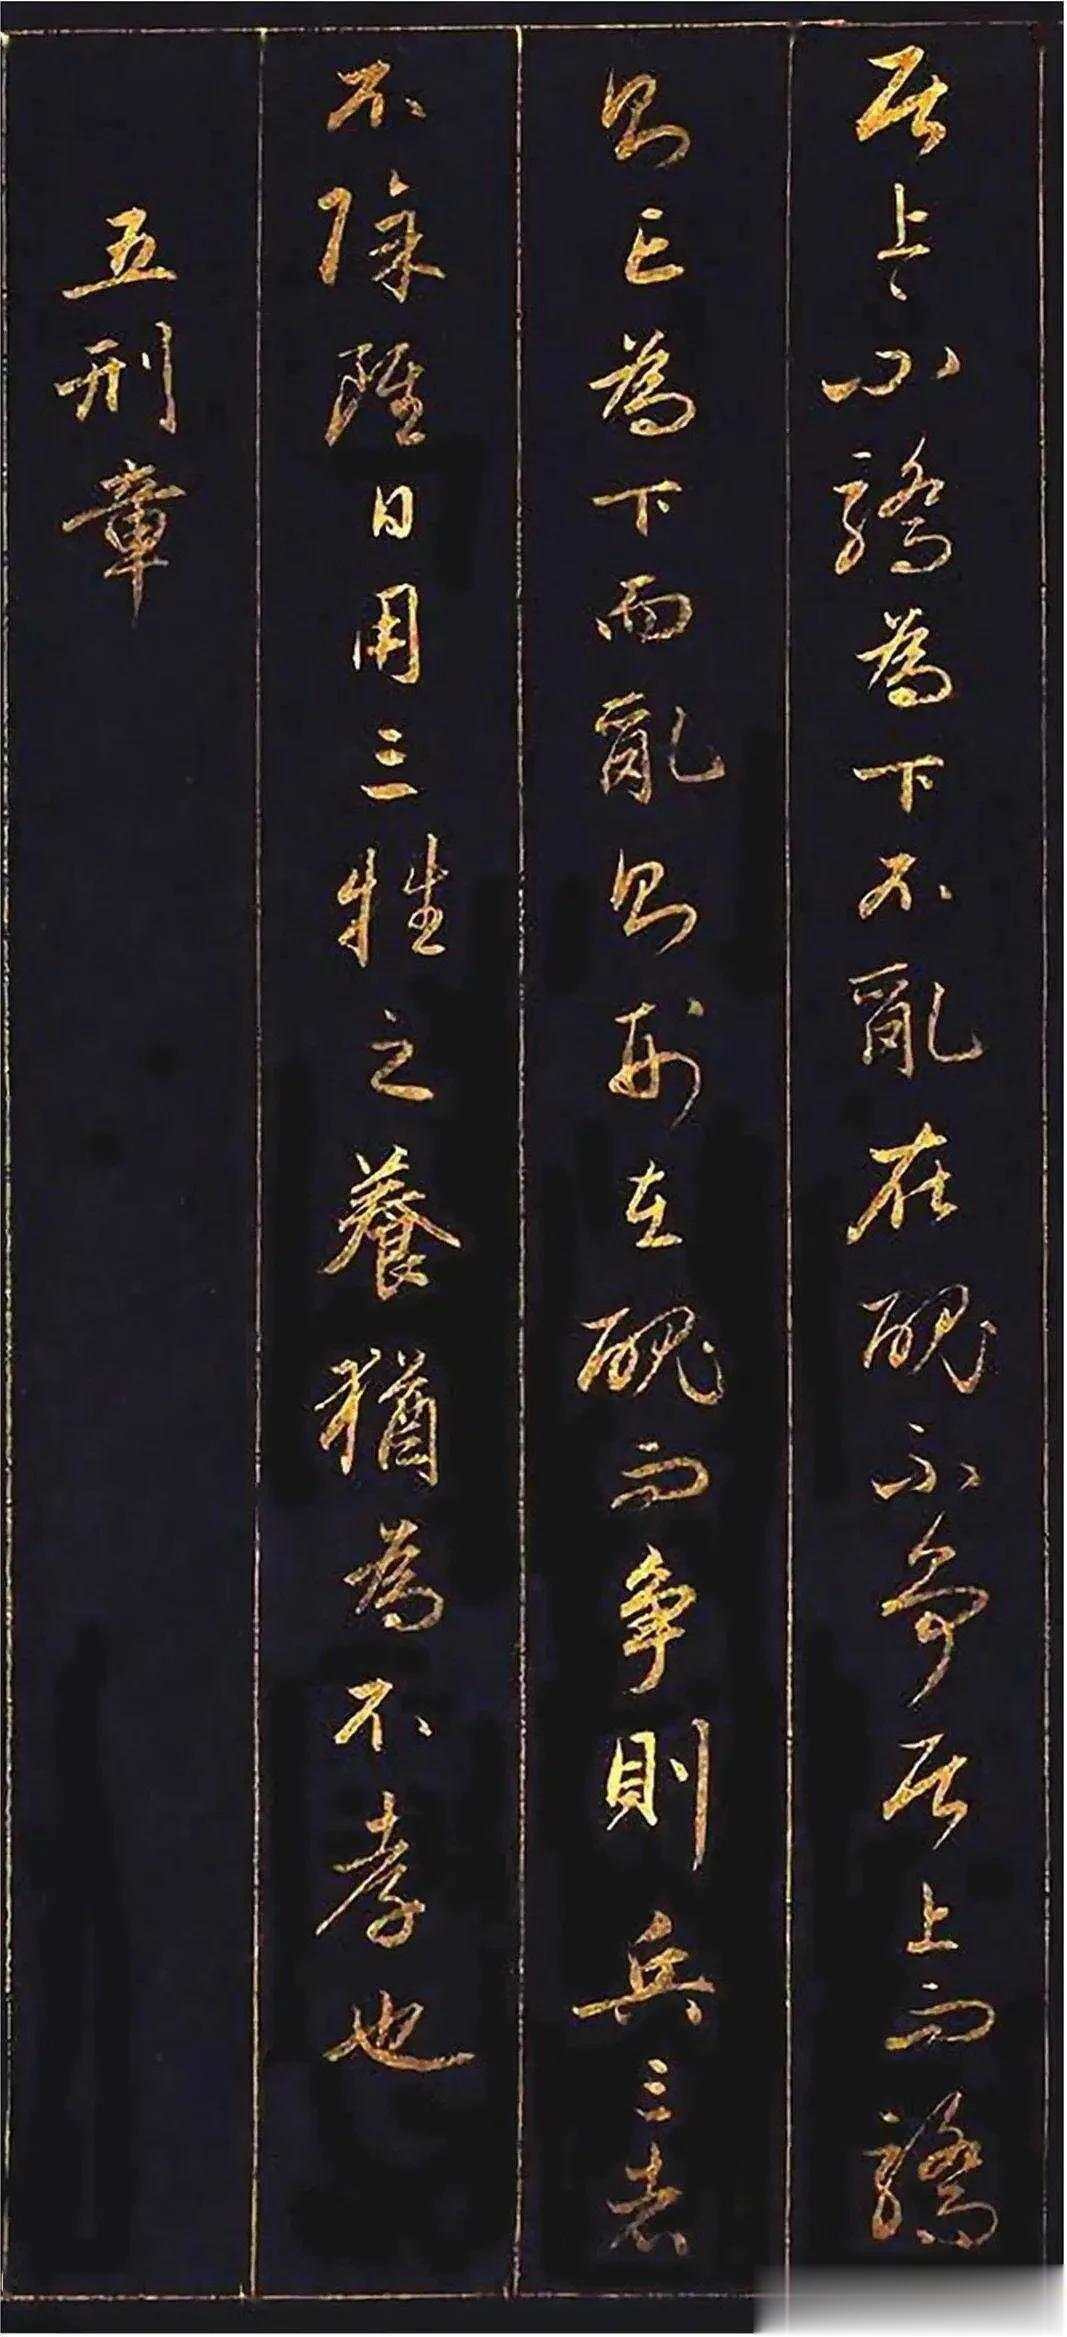 居上上不驕為下不亂在醜不爭居上而驕
則亡為下而亂則刑在醜而爭則兵三者
不除雖日用三牲之養猶為不孝也
五刑章